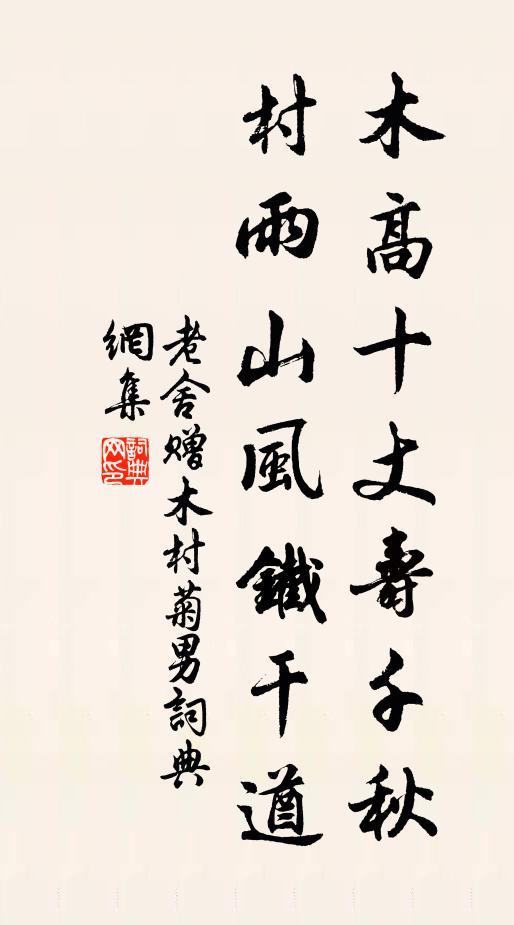 木高十丈壽千秋
村雨山風鐵干遒
老舍赠木村菊男詞典
網集
詞典
网印